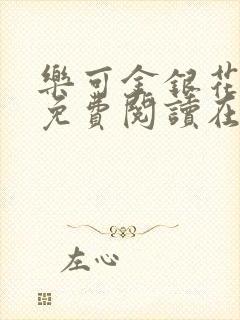 樂可金銀花
免費閱讀在
左心